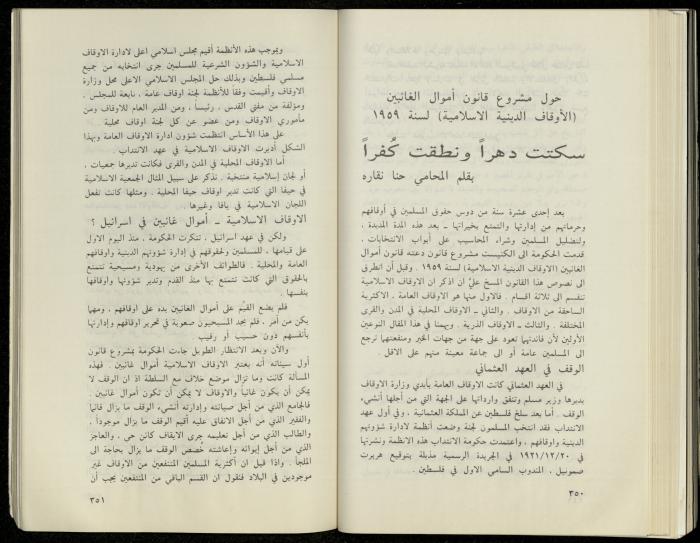 حول مشروع قانون أموال الغائبين
(الأوقاف الدينية الاسلامية) لسنة ١٩٥٩
سكتت دهراً ونطقت كُفراً
بقلم المحامي حنا نقاره
بعد إحدى عشرة سنة من دوس حقوق المسلمين في أوقافهم
وحرمانهم من إدارتها والتمتع بخيراتها ـ بعد هذه المدة المديدة ،
ولتضليل المسلمين وشراء المحاسيب على أبواب الانتخابات ،
قدمت الحكومة الى الكنيست مشروع قانون دعته قانون أموال
الغائبين (الاوقاف الدينية الاسلامية) لسنة ١٩٥٩ . وقبل أن اتطرق
الى نصوص هذا القانون المسخ عليّ ان اذكر ان الاوقاف الاسلامية
تنقسم الى ثلاثة اقسام . فالاول منها هو الاوقاف العامة ، الاكثرية
الساحقة من الاوقاف . والثاني ـ الاوقاف المحلية في المدن والقرى
المختلفة . والثالث ـ الاوقاف الذرية . ويهمنا في هذا المقال النوعين
الأولين لأن فائدتهما تعود على جهة من جهات الخير ومنفعتهما ترجع
الى المسلمين عامة أو الى جماعة معينة منهم على الاقل .
الوقف في العهد العثماني
في العهد العثماني كانت الاوقاف العامة بأيدي وزارة الاوقاف
يديرها وزير مسلم وتنفق وارداتها على الجهة التي من أجلها أنشىء
الوقف . أما بعد سلخ فلسطين عن المملكة العثمانية ، وفي أول عهد
الانتداب فقد انتخب المسلمون لجنة وضعت أنظمة لادارة شؤونهم
الدينية واوقافهم ، واعتمدت حكومة الانتداب هذه الانظمة ونشرتها
في ١٩٢١/١٢/٢٠ في الجريدة الرسمية مذيلة بتوقيع هربرت
صموئيل ، المندوب السامي الاول في فلسطين .
٣٥٠
وبموجب هذه الأنظمة أقيم مجلس اسلامي اعلى لادارة الاوقاف
الاسلامية والشؤون الشرعية للمسلمين جرى انتخابه من جميع
مسلمي فلسطين وبذلك حل المجلس الاسلامي الاعلى محل وزارة
الاوقاف وأقيمت وفقاً للأنظمة لجنة اوقاف عامة ، تابعة للمجلس ،
ومؤلفة من مفتي القدس ، رئيساً ، ومن المدير العام للاوقاف ومن
مأموري الاوقاف ومن عضو عن كل لجنة اوقاف محلية .
على هذا الأساس انتظمت شؤون ادارة الاوقاف العامة وبهذا
الشكل أديرت الاوقاف الاسلامية في عهد الانتداب .
أما الاوقاف المحلية في المدن والقرى فكانت تديرها جمعيات ،
أو لجان إسلامية منتخبة . نذكر على سبيل المثال الجمعية الاسلامية
في حيفا التي كانت تدير اوقاف حيفا المحلية . ومثلها كانت تفعل
اللجان الاسلامية في يافا وغيرها .
الاوقاف الاسلامية ـ أموال غائبين في اسرائيل ؟
ولكن في عهد اسرائيل ، تنكرت الحكومة ، منذ اليوم الاول
على قيامها ، للمسلمين ولحقوقهم في إدارة شؤونهم الدينية واوقافهم
العامة والمحلية . فالطوائف الأخرى من يهودية ومسيحية تتمتع
بالحقوق التي كانت تتمتع بها منذ القدم وتدير شؤونها واوقافها
بنفسها .
فلم يضع القيّم على أموال الغائبين يده على اوقافهم ، ومهما
يكن من أمر ، فلم يجد المسيحيون صعوبة في تحرير اوقافهم وإدارتها
بأنفسهم دون حسيب أو رقيب
والآن وبعد الانتظار الطويل جاءت الحكومة بمشروع قانون
أول سيئاته أنه يعتبر الاوقاف الاسلامية أموال غائبين . فهذه
المسألة كانت وما تزال موضع خلاف مع السلطة اذ ان الوقف لا
يمكن أن يكون غائباً والاوقاف لا يمكن أن تكون أموال غائبين .
فالجامع الذي من أجل صيانته وإدارته أنشىء الوقف ما يزال قائماً
والفقير الذي من أجل الانفاق عليه أقيم الوقف ما يزال موجوداً ،
والطالب الذي من أجل تعليمه جرى الايقاف كائن حي ، والعاجز
الذي من أجل إيوائه وإعاشته خُصص الوقف ما يزال بحاجة الى
الملجأ . واذا قيل ان أكثرية المسلمين المنتفعين من الاوقاف غير
موجودين في البلاد فنقول ان القسم الباقي من المنتفعين يجب أن
٣٥١